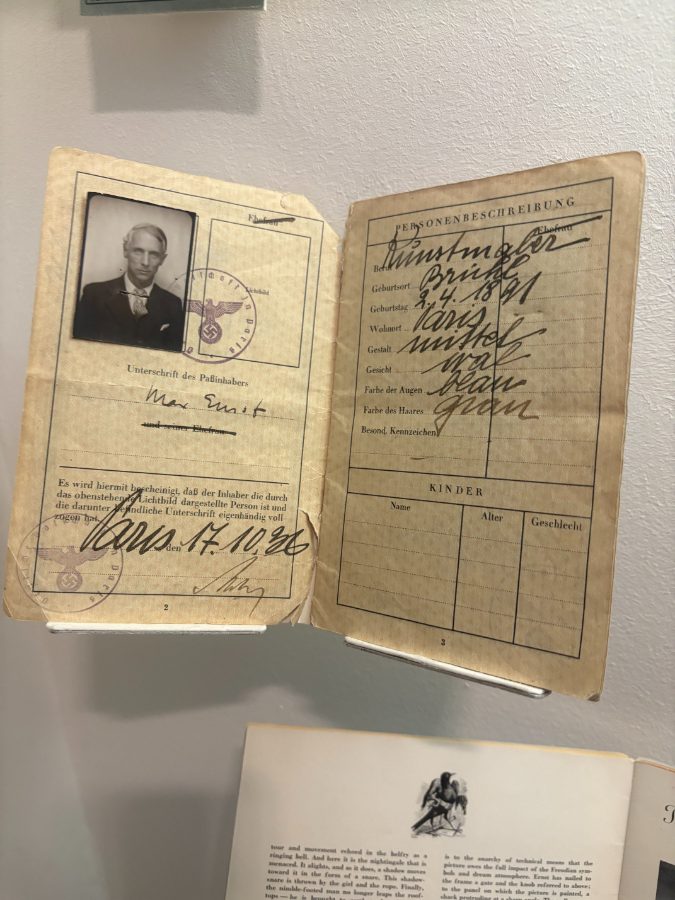 Ehefrau
Lichtbild
Unterschrift des Paßinhabers
Max Ernst
und seiner Ehefrau
Es wird hiermit bescheinigt, daß der Inhaber die durch
das obenstehende Lichtbild dargestellte Person ist und
die darunter befindliche Unterschrift eigenhändig voll
zogen hat.
Paris den 17. 10. 36
2
PERSONENBESCHREIBUNG
Ehefrau
Beruf Kunstmaler
Geburtsort Brühl
Geburtstag 2. 4. 1891
Wohnort Paris
Gestalt mittel
Gesicht oval
Farbe der Augen blau
Farbe des Haares grau
Besond. Kennzeichen
KINDER
Name Alter Geschlecht
3
tour and movement echoed in the belfry as a
ringing bell. And here it is the nightingale that is
menaced. It alights, and as it does, a shadow moves
toward it in the form of a snare. This shadow-
snare is thrown by the girl and the rope. Finally,
the nimble-footed man no longer leaps the roof-
tops — he is brought
is to the anarchy of technical means that the
picture owes the full impact of the Freudian sym-
bol and dream atmosphere. Ernst has nailed to
the frame a gate and the knob referred to above;
to the panel on which the picture is painted, a